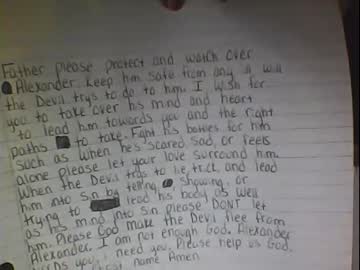 Father please protect and watch over
Alexander. Keep him safe from any ill will
the Devil trys to do to him. I wish for
you to take over his mind and heart
to lead him towards you and the right
paths to take. Fight his battles for him
such as when he's scared, sad, or feels
alone please let your love surround him.
When the Devil trys to lie, trick, and lead
him into sin by telling, showing, or
trying to lead his body as well
as his mind into sin please DON'T let
him. Please God make the Devil flee from
Alexander. I am not enough God. Alexander
needs you, I need you. Please help us God.
Christ name Amen